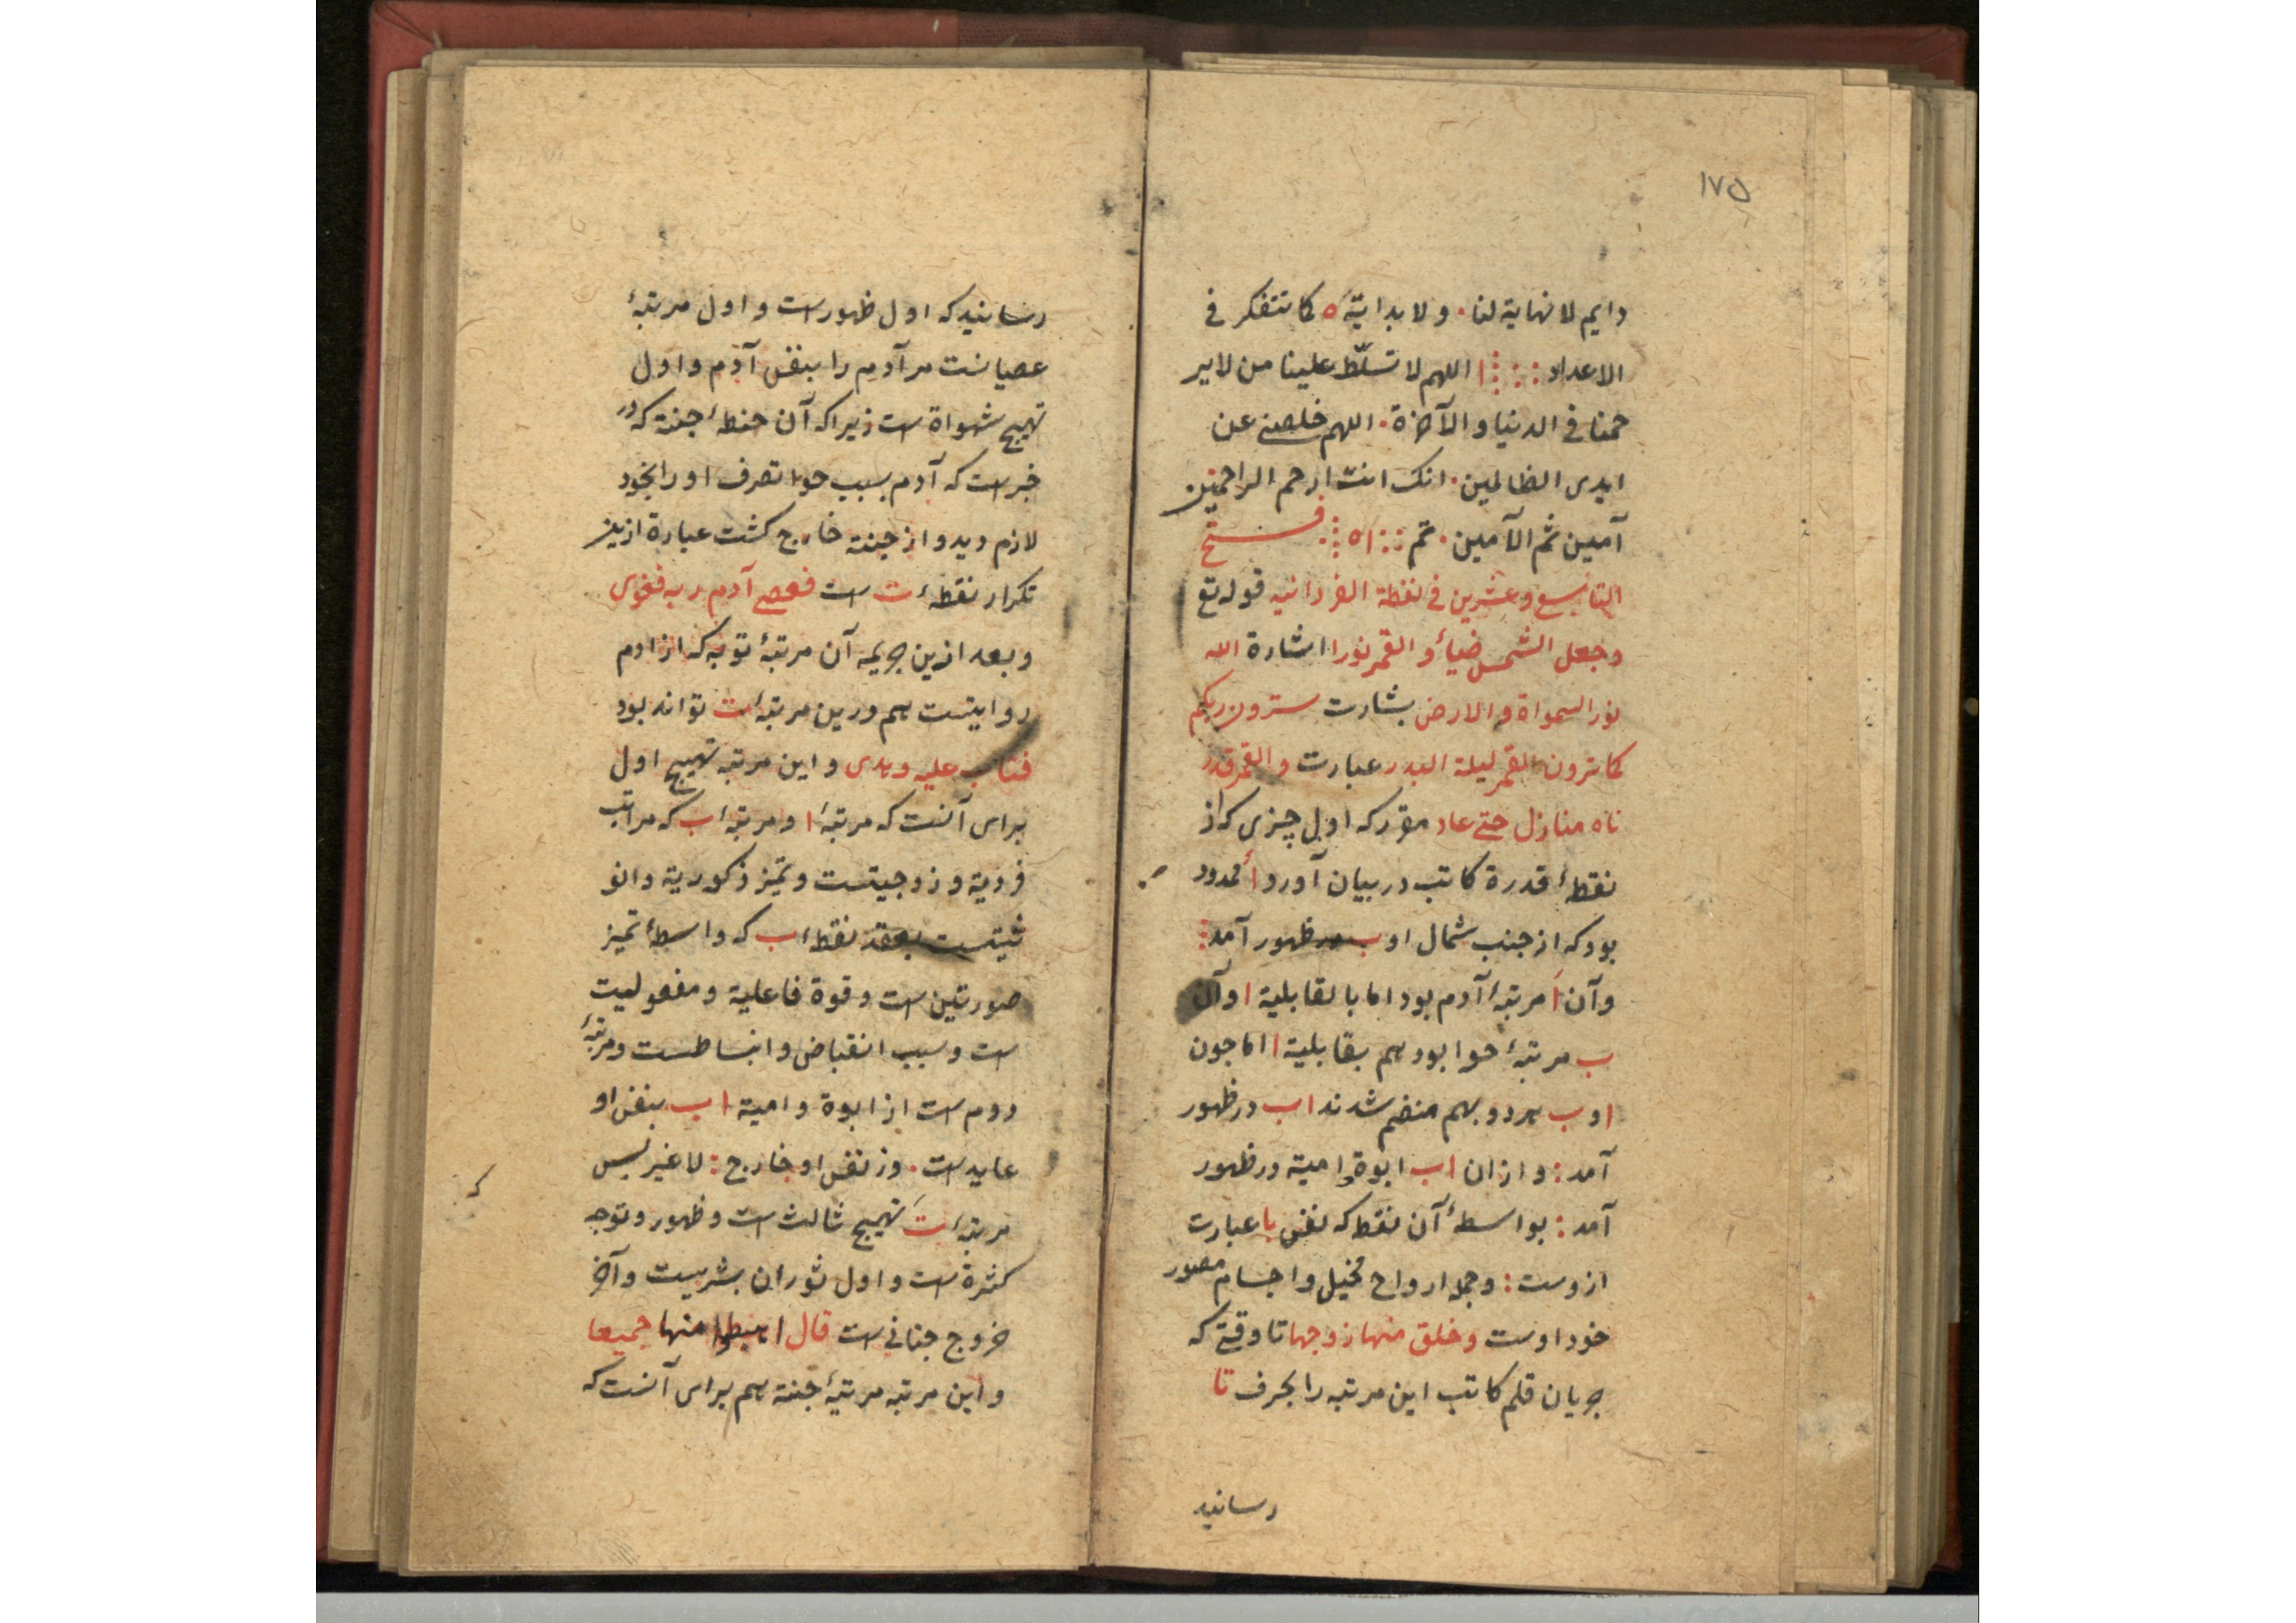 ۱۷۵
دایم لا نهایة لنا۰ ولا بدایة ۵ کما نتفکر فی
الاعداد ا اللهم لا تسلّط علینا من لا یر
حمنا فی الدنیا و الآخرة۰ اللهم خلصنے عن
ایدی الظالمین۰ انک انت ارحم الراحمین
آمین ثم الآمین۰ تم فتح
التاسع وعشرین فی نقطة الفردانیه قوله تع
وجعل الشمس ضیاءً والقمر نورا اشارة الله
نور السمواة والارض بشارت سترون ربکم
کما ترون القمر لیلة البدر عبارت والقمر قدر
ناه منازل حتے عاد مقرر که اول چیزی که از
نقطهٔ قدرة کاتب در بیان آورد أ ممدود
بود که از جنب شمال او ب در ظهور آمد:
وآن أ مرتبهٔ آدم بود اما بالقابلیة ا و آن
ب مرتبهٔ حوا بود هم بقابلیة ا اما جون
ا و ب هر دو بهم منضم شدند اب در ظهور
آمد: و ازان اب ابوة و امیة در ظهور
آمد: بواسطهٔ آن نقطه که نفس با عبارت
ازوست: وجمله ارواح مخیل و اجسام مصور
خود اوست وخلق منها زوجها تا وقتے که
جریان قلم کاتب این مرتبه را بحرف تا
رسانید
رسانید که اول ظهور است و اول مرتبهٔ
عصیانست مر آدم را بنفس آدم و اول
تهیج شهواة است زیرا که آن حنطهٔ جنة که در
خبر است که آدم بسبب حوا تصرف او را بخود
لازم دید و از جنة خارج کشت عبارة ازین
تکرار نقطهٔ ت است فعصے آدم ربه فغوی
و بعد ازین جریمه آن مرتبهٔ توبه که از ادم
روایتست هم درین مرتبهٔ ت تواند بود
فتاب علیه وهدی و این مرتبه تهیج اول
برای آنست که مرتبهٔ ا و مرتبهٔ اب که مراتب
فردیة و زوجیتست و تمیز ذکوریة و انو
ثیتست بعقد نقطهٔ ب که واسطهٔ تمیز
صورتین است و قوة فاعلیة و مفعولیت
است و سبب انقباض و انبساطست و مرتبهٔ
دوم است از ابوة و امیة اب بنفس او
عاید است۰ وز نفس او خارج: لا غیر پس
مرتبهٔ ت تهیج ثالث است و ظهور و توجه
کثرة است و اول ثوران بشریت و آخر
خروج جنانی است قال اهبطوا منها جمیعا
و این مرتبه مرتبهٔ جنة هم برای آنست که